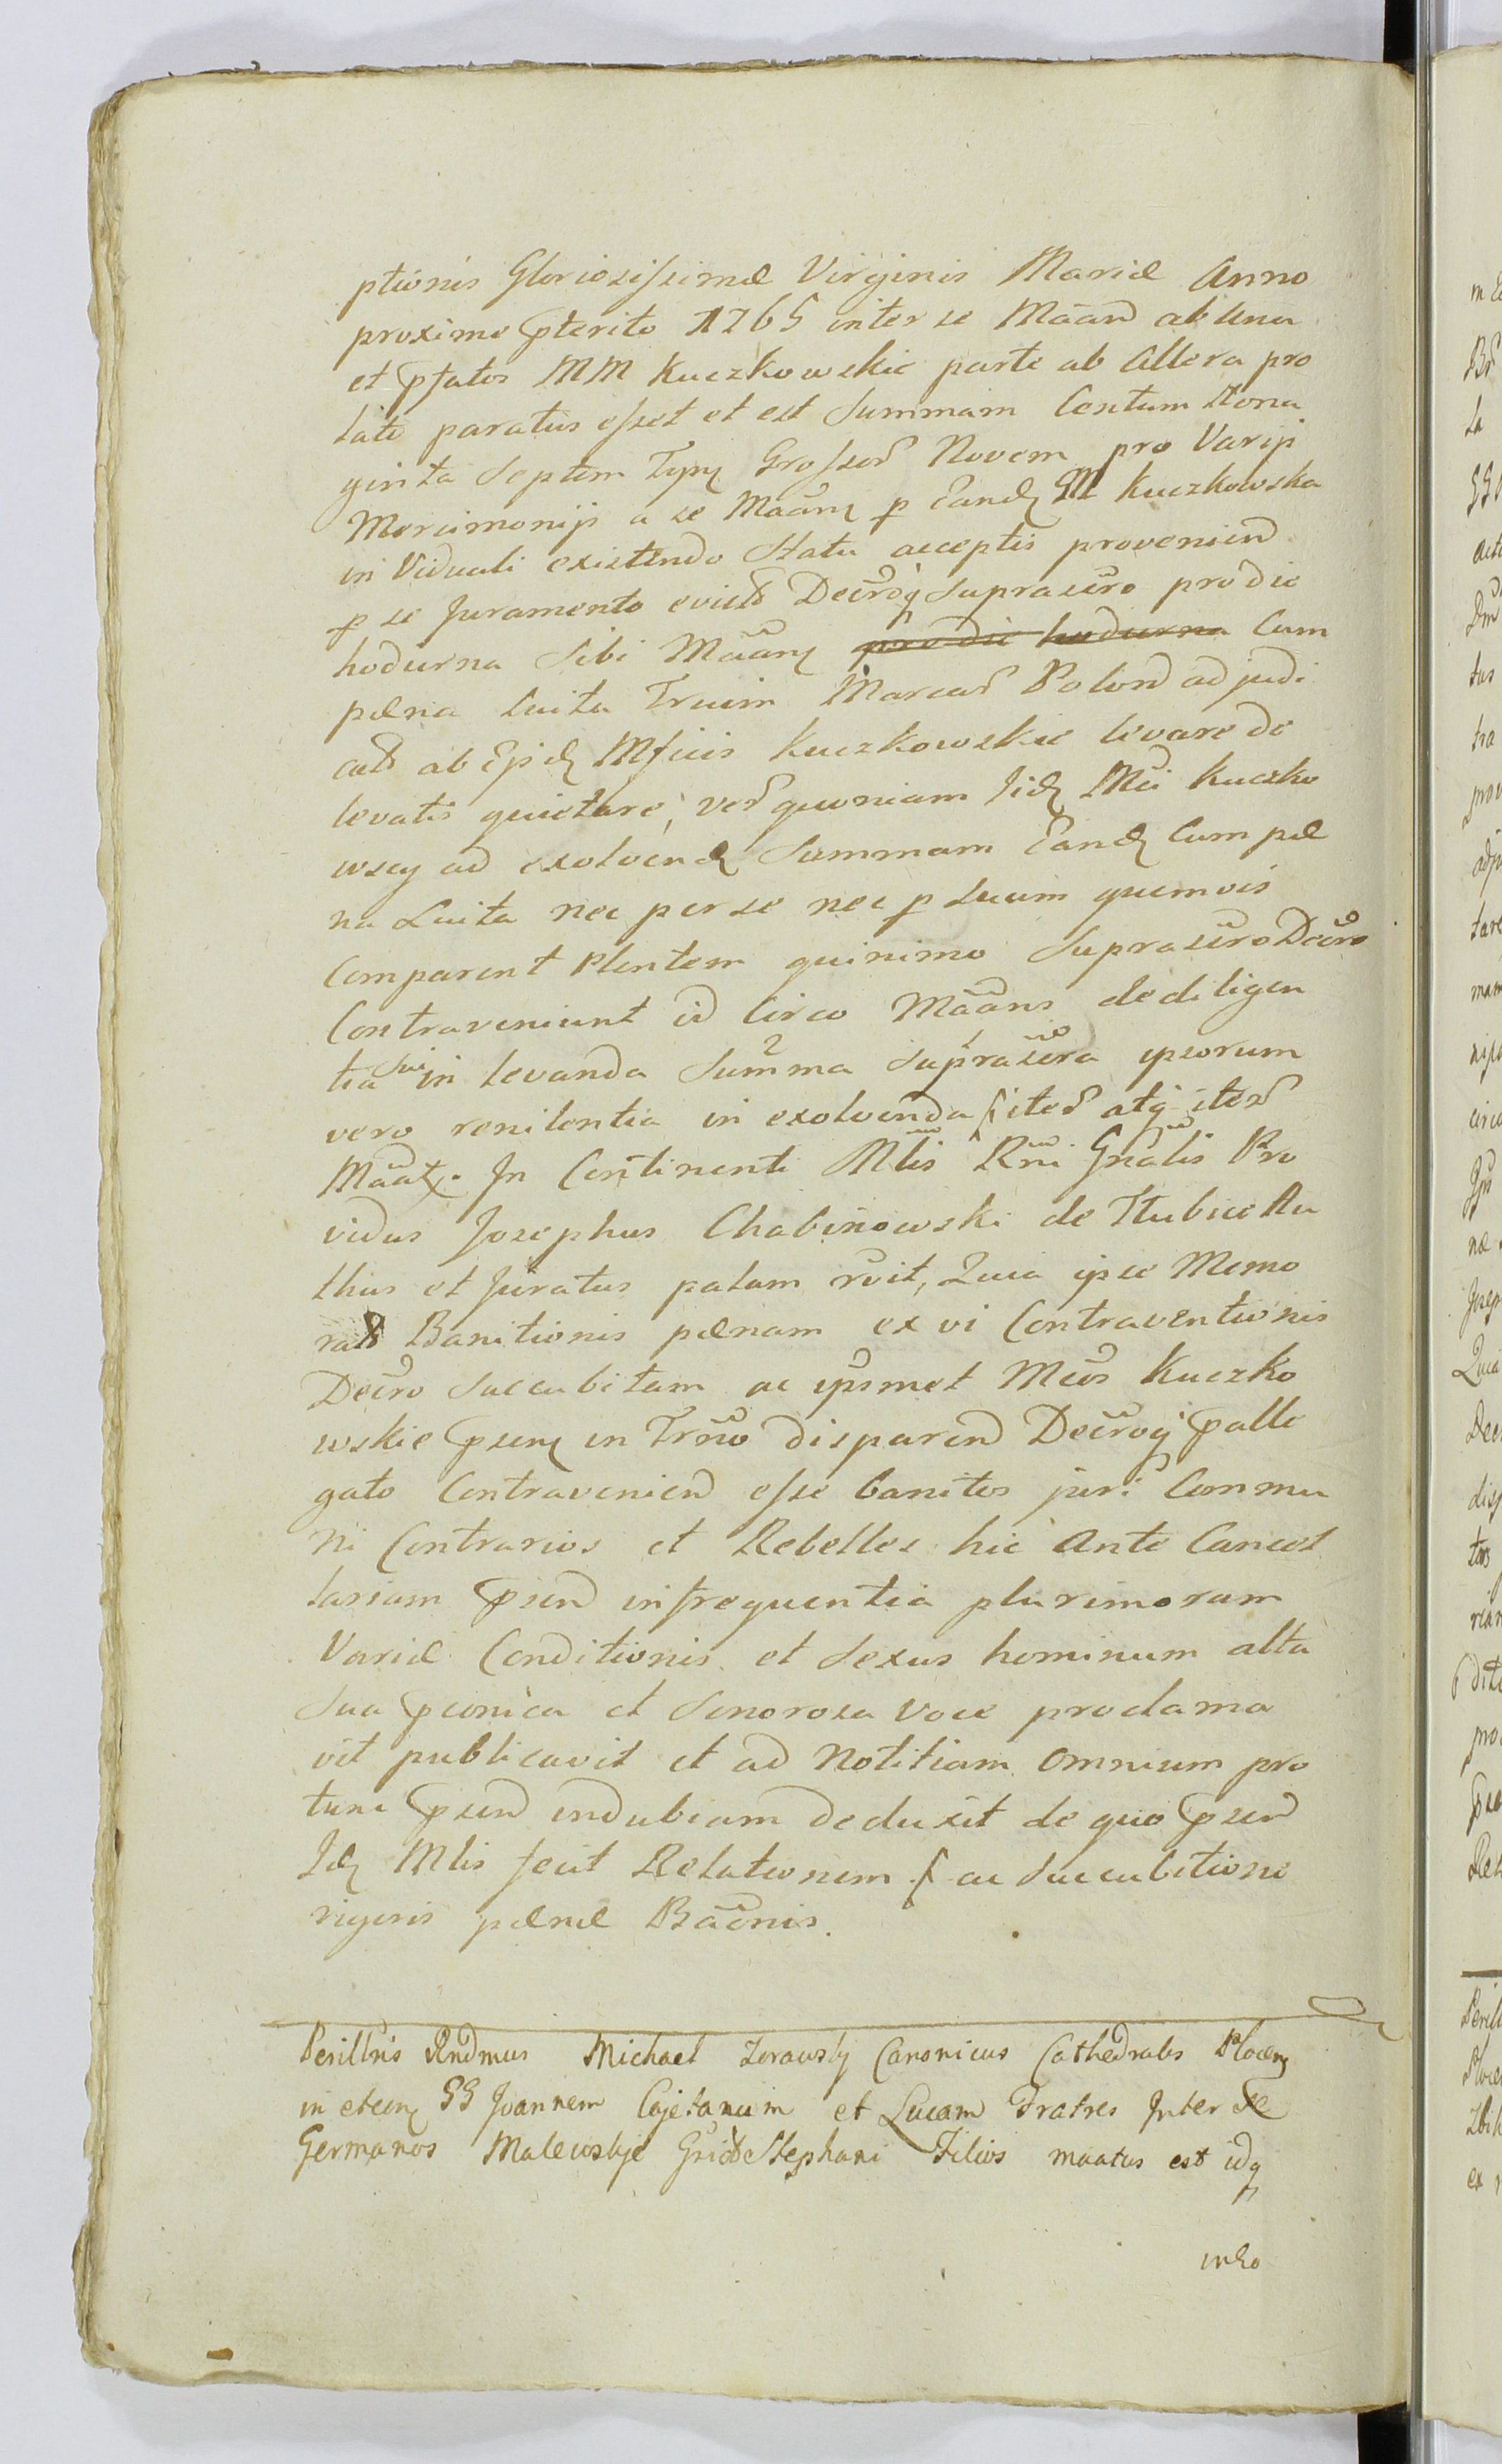 ptionis Gloriosissimæ Virginis Mariæ Anno
proximo pterito 1765 inter se Maand ab una
et pfatos MM Kuczkowskie parte ab altera pro
lati paratus esset et est Summam Centum Nona
ginta Septem Typ Grossor Novem pro Varijs
Mercimonijs a se Maan p Eand M Kuczkowska
in Viduali existendo Statu acceptis proveniend
p se Juramento evict Decroq suprascro pro die
hodierna Sibi Maan pro die hodierna Cum
pæna luita Trium Marcar Polond adjudi
cat ab Ejsd Mficis Kuczkowskie levare de
levatis quietare, ver quoniam Jid Mci Kuczko
wscy ad exolvend Summam Eand Cum pæ
na Luita nec per se nec p suum quemvis
Comparent Plentem quinimo Suprascro Decro
Contraveniunt id Circo Maans de diligen
tia sui in levanda Summa suprascra ipsorum
vero renitentia in exolvenda iter atq iter
Maat. In Continenti Mlis Rni Gnalis Pro
vidus Josephus Chabinowski de Trubice Au
thus et Juratus palam rvit, Quia ipse Memo
rat Banitionis pænam ex vi Contraventionis
Decro succubitam ac ipsmet Mcos Kuczko
wskie psen in Trno disparend Decroq palle
gato Contraveniend esse banitos juri Commu
ni Contrarios et Rebelles hic Ante Cancel
lariam psend in frequentia plurimorum
Variæ Conditionis et Sexus hominum alta
Sua pconica et Sonorosa voce proclama
vit publicavit et ad Notitiam omnium pro
tunc psend indubiam deduxit de quo psen
Id Mlis fecit Relationem ac succubitione
rigoris pænæ Baonis.
Perillris Rndmus Michael Zorawsky Canonicus Cathedralis Plocen
in et con GG Joannem Cajetanum et Lucam Fratres Inter Se
Germanos Malewskje Gsid Stephani Filios maatus est idq
in Eo